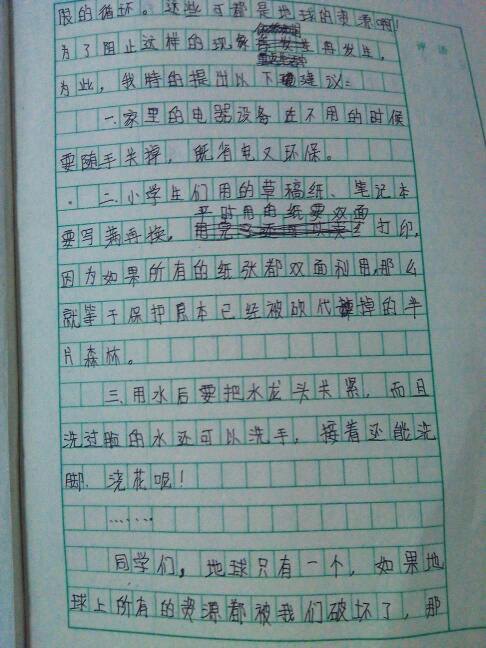 限的循环。这些可都是地球的资源啊！
评语
为了阻止这样的现象再发生，
为此，我特的提出以下建议：
一.家里的电器设备在不用的时候
要随手关掉，既省电又环保。
二.小学生们用的草稿纸、笔记本
平时用的纸要双面
要写满再换。打印，
因为如果所有的纸张都双面利用，那么
就等于保护原本已经被砍伐掉的半
片森林。
三.用水后要把水龙头关紧，而且
洗过脸的水还可以洗手，接着还能洗
脚.浇花呢！
……
同学们，地球只有一个，如果地
球上所有的资源都被我们破坏了，那